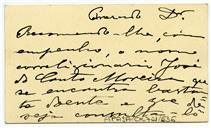 Presado Dr.
Recommendo-lhe, com
empenho, o nosso
correligionario José
do Couto Moreira que
se encontra basta
te doente e que de
seja consultal-o